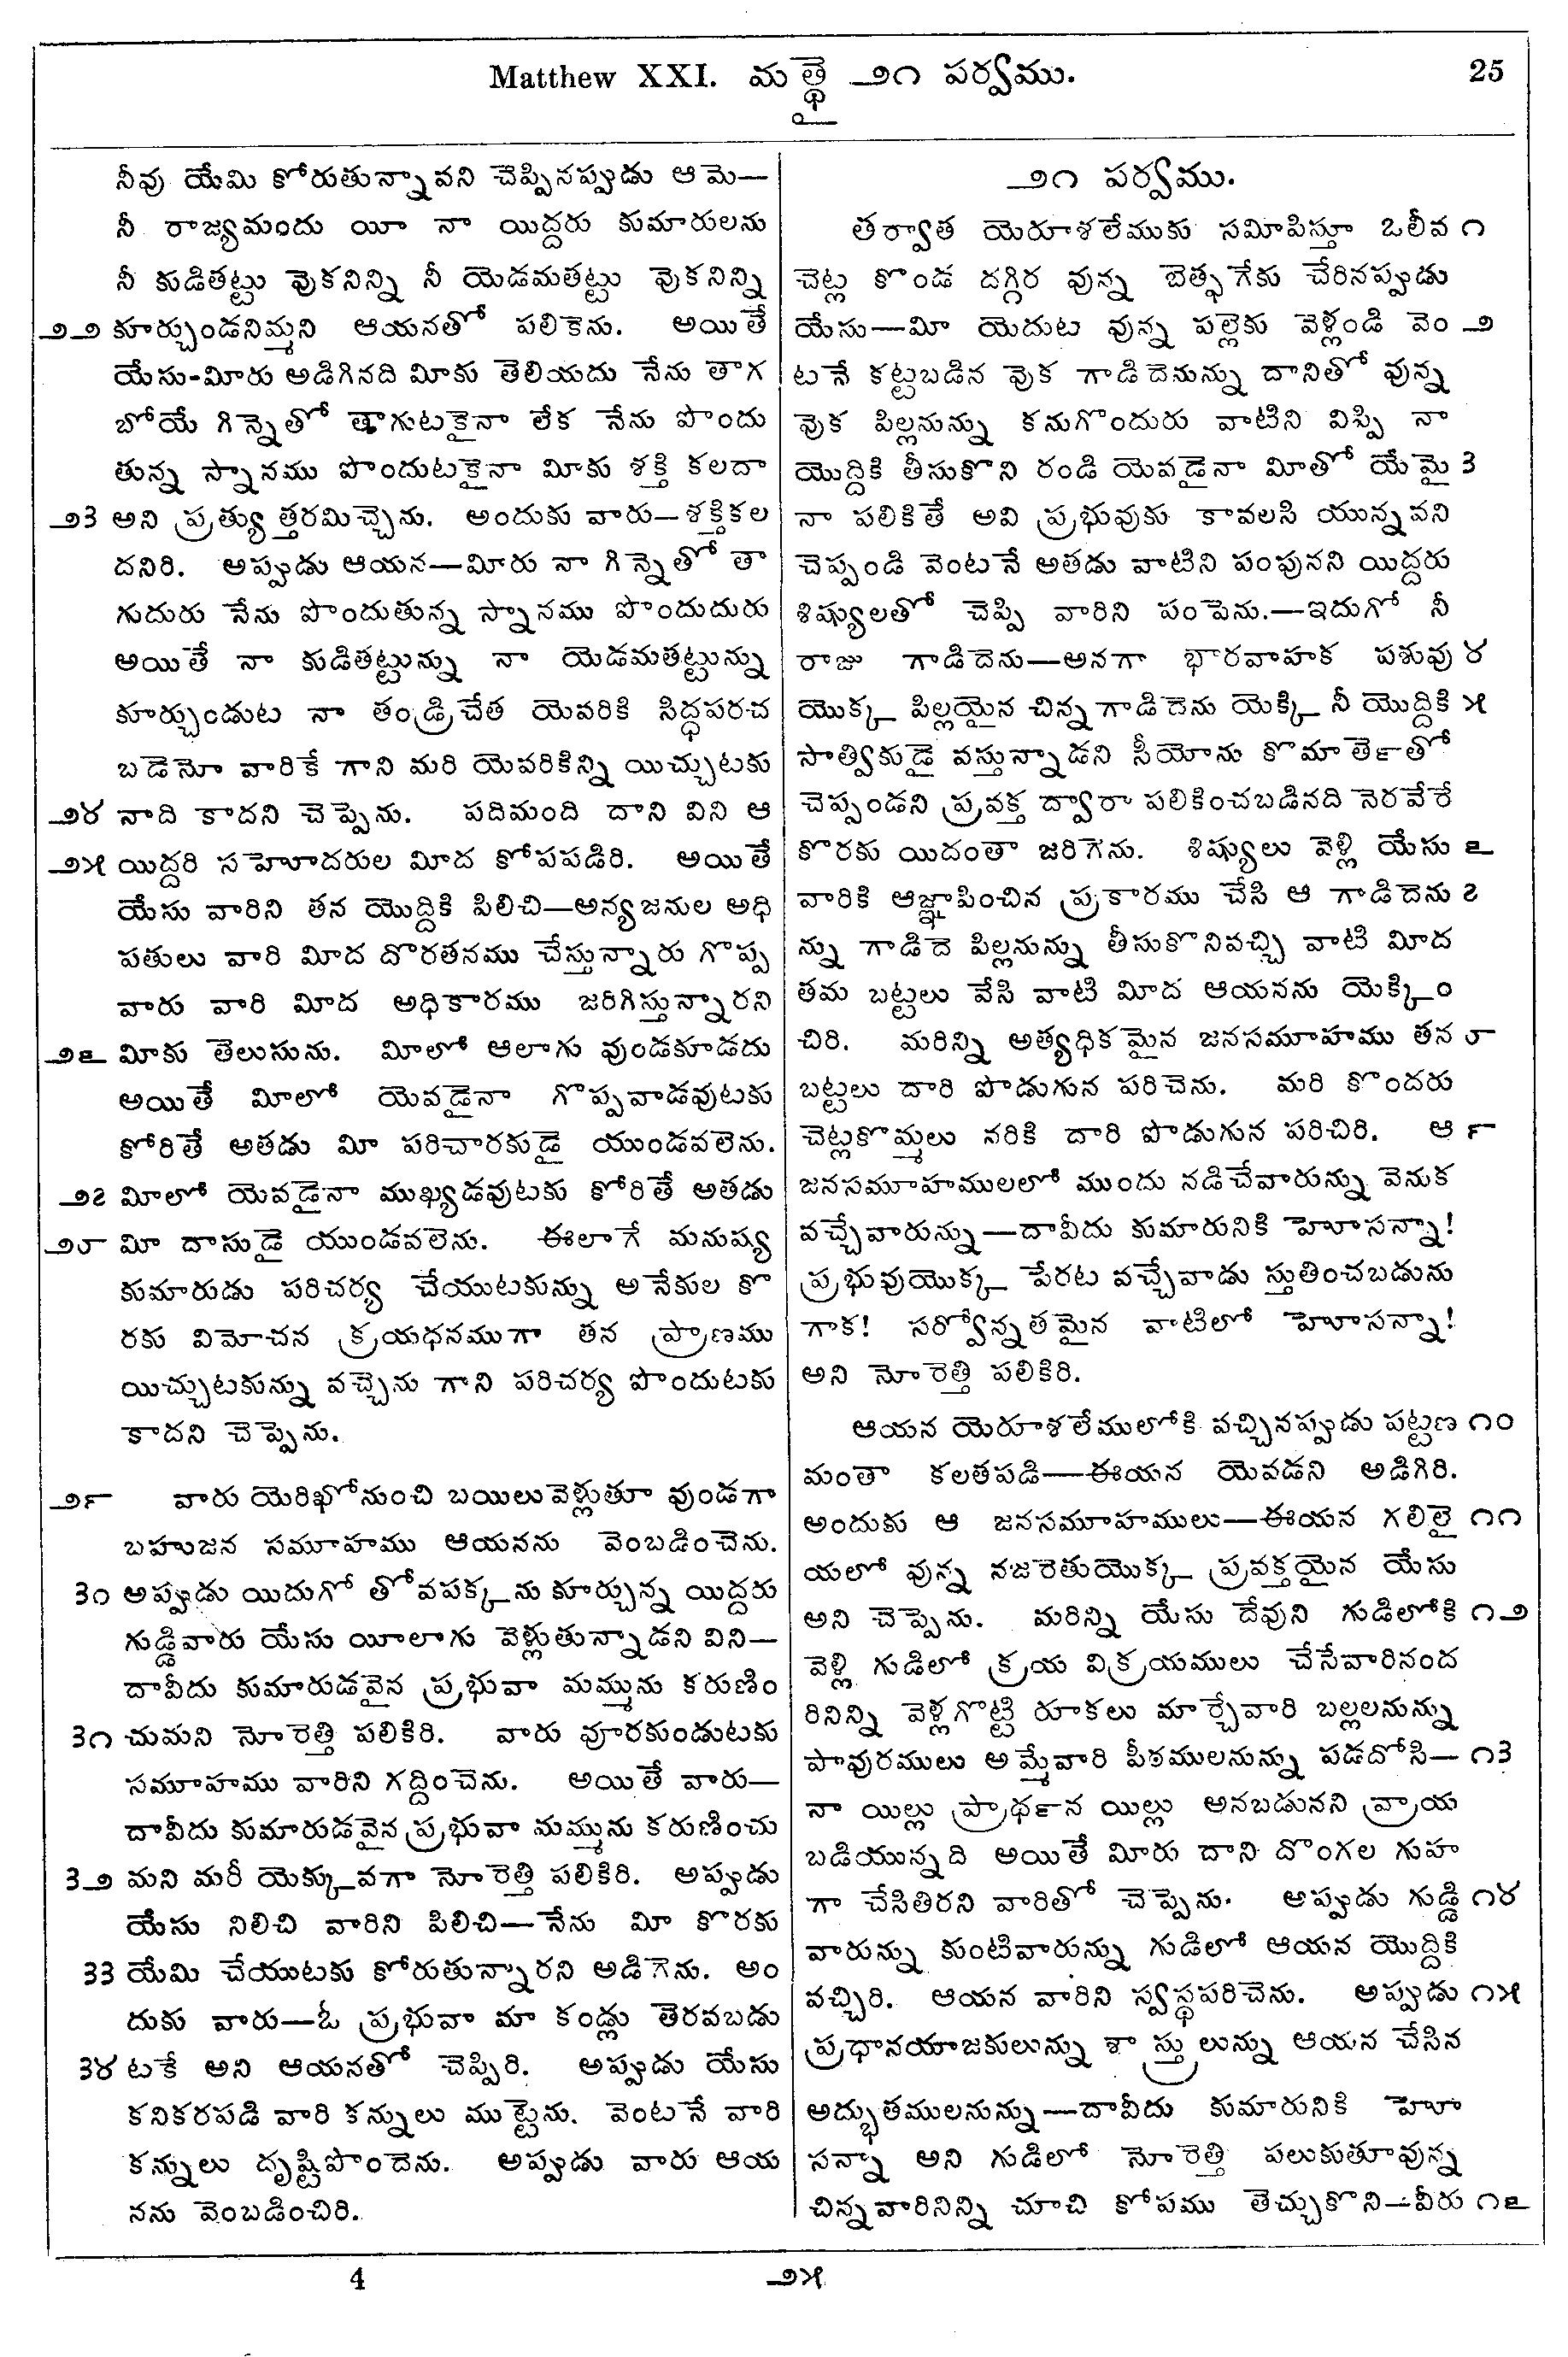 Matthew XXI. మత్థై ౨౧ పర్వము. 25
నీవు యేమి కోరుతున్నావని చెప్పినప్పుడు ఆమె—
నీ రాజ్యమందు యీ నా యిద్దరు కుమారులను
నీ కుడితట్టు వుకనిన్ని నీ యెడమతట్టు వుకనిన్ని
౨౨ కూర్చుండనిమ్మని ఆయనతో పలికెను. అయితే
యేసు-మీరు అడిగినది మీకు తెలియదు నేను తాగ
బోయే గిన్నెతో తాగుటకైనా లేక నేను పొందు
తున్న స్నానము పొందుటకైనా మీకు శక్తి కలదా
౨౩ అని ప్రత్యుత్తరమిచ్చెను. అందుకు వారు—శక్తికల
దనిరి. అప్పుడు ఆయన—మీరు నా గిన్నెతో తా
గుదురు నేను పొందుతున్న స్నానము పొందుదురు
అయితే నా కుడితట్టున్ను నా యెడమతట్టున్ను
కూర్చుండుట నా తండ్రిచేత యెవరికి సిద్ధపరచ
బడెనో వారికే గాని మరి యెవరికిన్ని యిచ్చుటకు
౨౪ నాది కాదని చెప్పెను. పదిమంది దాని విని ఆ
౨౫ యిద్దరి సహోదరుల మీద కోపపడిరి. అయితే
యేసు వారిని తన యొద్దికి పిలిచి—అన్యజనుల అధి
పతులు వారి మీద దొరతనము చేస్తున్నారు గొప్ప
వారు వారి మీద అధికారము జరిగిస్తున్నారని
౨౬ మీకు తెలుసును. మీలో ఆలాగు వుండకూడదు
అయితే మీలో యెవడైనా గొప్పవాడవుటకు
కోరితే అతడు మీ పరిచారకుడై యుండవలెను.
౨౭ మీలో యెవడైనా ముఖ్యడవుటకు కోరితే అతడు
౨౮ మీ దాసుడై యుండవలెను. ఈలాగే మనుష్య
కుమారుడు పరిచర్య చేయుటకున్ను అనేకుల కొ
రకు విమోచన క్రయధనముగా తన ప్రాణము
యిచ్చుటకున్ను వచ్చెను గాని పరిచర్య పొందుటకు
కాదని చెప్పెను.
౨౯ వారు యెరిఖోనుంచి బయిలువెళ్లుతూ వుండగా
బహుజన సమూహము ఆయనను వెంబడించెను.
౩౦ అప్పుడు యిదుగో తోవపక్కను కూర్చున్న యిద్దరు
గుడ్డివారు యేసు యీలాగు వెళ్లుతున్నాడని విని—
దావీదు కుమారుడవైన ప్రభువా మమ్మును కరుణిం
౩౧ చుమని నోరెత్తి పలికిరి. వారు వూరకుండుటకు
సమూహము వారిని గద్దించెను. అయితే వారు—
దావీదు కుమారుడవైన ప్రభువా మమ్మును కరుణించు
౩౨ మని మరీ యెక్కువగా నోరెత్తి పలికిరి. అప్పుడు
యేసు నిలిచి వారిని పిలిచి—నేను మీ కొరకు
౩౩ యేమి చేయుటకు కోరుతున్నారని అడిగెను. అం
దుకు వారు—ఓ ప్రభువా మా కండ్లు తెరవబడు
౩౪ టకే అని ఆయనతో చెప్పిరి. అప్పుడు యేసు
కనికరపడి వారి కన్నులు ముట్టెను. వెంటనే వారి
కన్నులు దృష్టిపొందెను. అప్పుడు వారు ఆయ
నను వెంబడించిరి.
౨౧ పర్వము.
తర్వాత యెరూశలేముకు సమీపిస్తూ ఒలీవ ౧
చెట్ల కొండ దగ్గిర వున్న బెత్ఫగేకు చేరినప్పుడు
యేసు—మీ యెదుట వున్న పల్లెకు వెళ్లండి వెం ౨
టనే కట్టబడిన వుక గాడిదెనున్ను దానితో వున్న
వుక పిల్లనున్ను కనుగొందురు వాటిని విప్పి నా
యొద్దికి తీసుకొని రండి యెవడైనా మీతో యేమై ౩
నా పలికితే అవి ప్రభువుకు కావలసి యున్నవని
చెప్పండి వెంటనే అతడు వాటిని పంపునని యిద్దరు
శిష్యులతో చెప్పి వారిని పంపెను.—ఇదుగో నీ
రాజు గాడిదెను—అనగా భారవాహక పశువు ౪
యొక్క పిల్లయైన చిన్నగాడిదెను యెక్కి నీ యొద్దికి ౫
సాత్వికుడై వస్తున్నాడని సీయోను కొమాతె౯తో
చెప్పండని ప్రవక్త ద్వారా పలికించబడినది నెరవేరే
కొరకు యిదంతా జరిగెను. శిష్యులు వెళ్లి యేసు ౬
వారికి ఆజ్ఞాపించిన ప్రకారము చేసి ఆ గాడిదెను ౭
న్ను గాడిదె పిల్లనున్ను తీసుకొనివచ్చి వాటి మీద
తమ బట్టలు వేసి వాటి మీద ఆయనను యెక్కిం
చిరి. మరిన్ని అత్యధికమైన జనసమూహము తన ౮
బట్టలు దారి పొడుగున పరిచెను. మరి కొందరు
చెట్లకొమ్మలు నరికి దారి పొడుగున పరిచిరి. ఆ ౯
జనసమూహములలో ముందు నడిచేవారున్ను వెనుక
వచ్చేవారున్ను—దావీదు కుమారునికి హోసన్నా!
ప్రభువుయొక్క పేరట వచ్చేవాడు స్తుతించబడును
గాక! సర్వోన్నతమైన వాటిలో హోసన్నా!
అని నోరెత్తి పలికిరి.
ఆయన యెరూశలేములోకి వచ్చినప్పుడు పట్టణ ౧౦
మంతా కలతపడి—ఈయన యెవడని అడిగిరి.
అందుకు ఆ జనసమూహములు—ఈయన గలిలై ౧౧
యలో వున్న నజరెతుయొక్క ప్రవక్తయైన యేసు
అని చెప్పెను. మరిన్ని యేసు దేవుని గుడిలోకి ౧౨
వెళ్లి గుడిలో క్రయ విక్రయములు చేసేవారినంద
రినిన్ని వెళ్లగొట్టి రూకలు మార్చేవారి బల్లలనున్ను
పావురములు అమ్మేవారి పీఠములనున్ను పడదోసి— ౧౩
నా యిల్లు ప్రాథ౯న యిల్లు అనబడునని వ్రాయ
బడియున్నది అయితే మీరు దాని దొంగల గుహ
గా చేసితిరని వారితో చెప్పెను. అప్పుడు గుడ్డి ౧౪
వారున్ను కుంటివారున్ను గుడిలో ఆయన యొద్దికి
వచ్చిరి. ఆయన వారిని స్వస్థపరిచెను. అప్పుడు ౧౫
ప్రధానయాజకులున్ను శాస్త్రులున్ను ఆయన చేసిన
అద్భుతములనున్ను—దావీదు కుమారునికి హో
సన్నా అని గుడిలో నోరెత్తి పలుకుతూవున్న
చిన్నవారినిన్ని చూచి కోపము తెచ్చుకొని—వీరు ౧౬
4 ౨౫